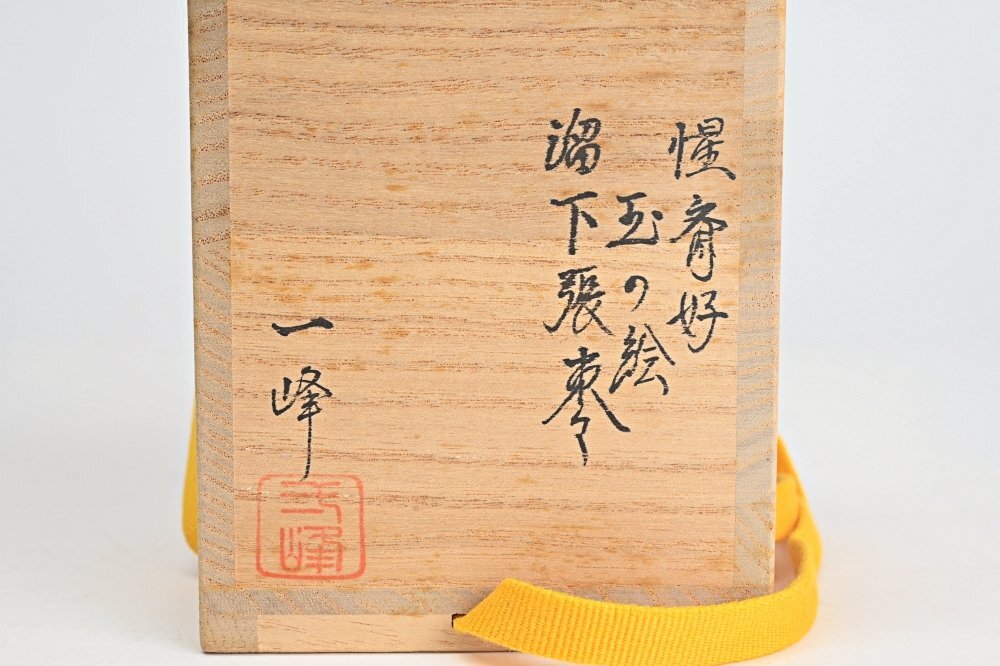 惺斎好
玉の絵
溜下張棗
一峰
一峰